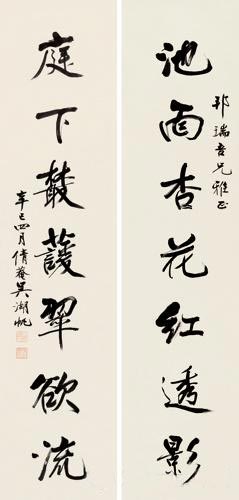 邦瑞吾兄雅正
池面杏花紅透影
庭下叢蘐翠欲流
辛巳四月倩菴吳湖帆